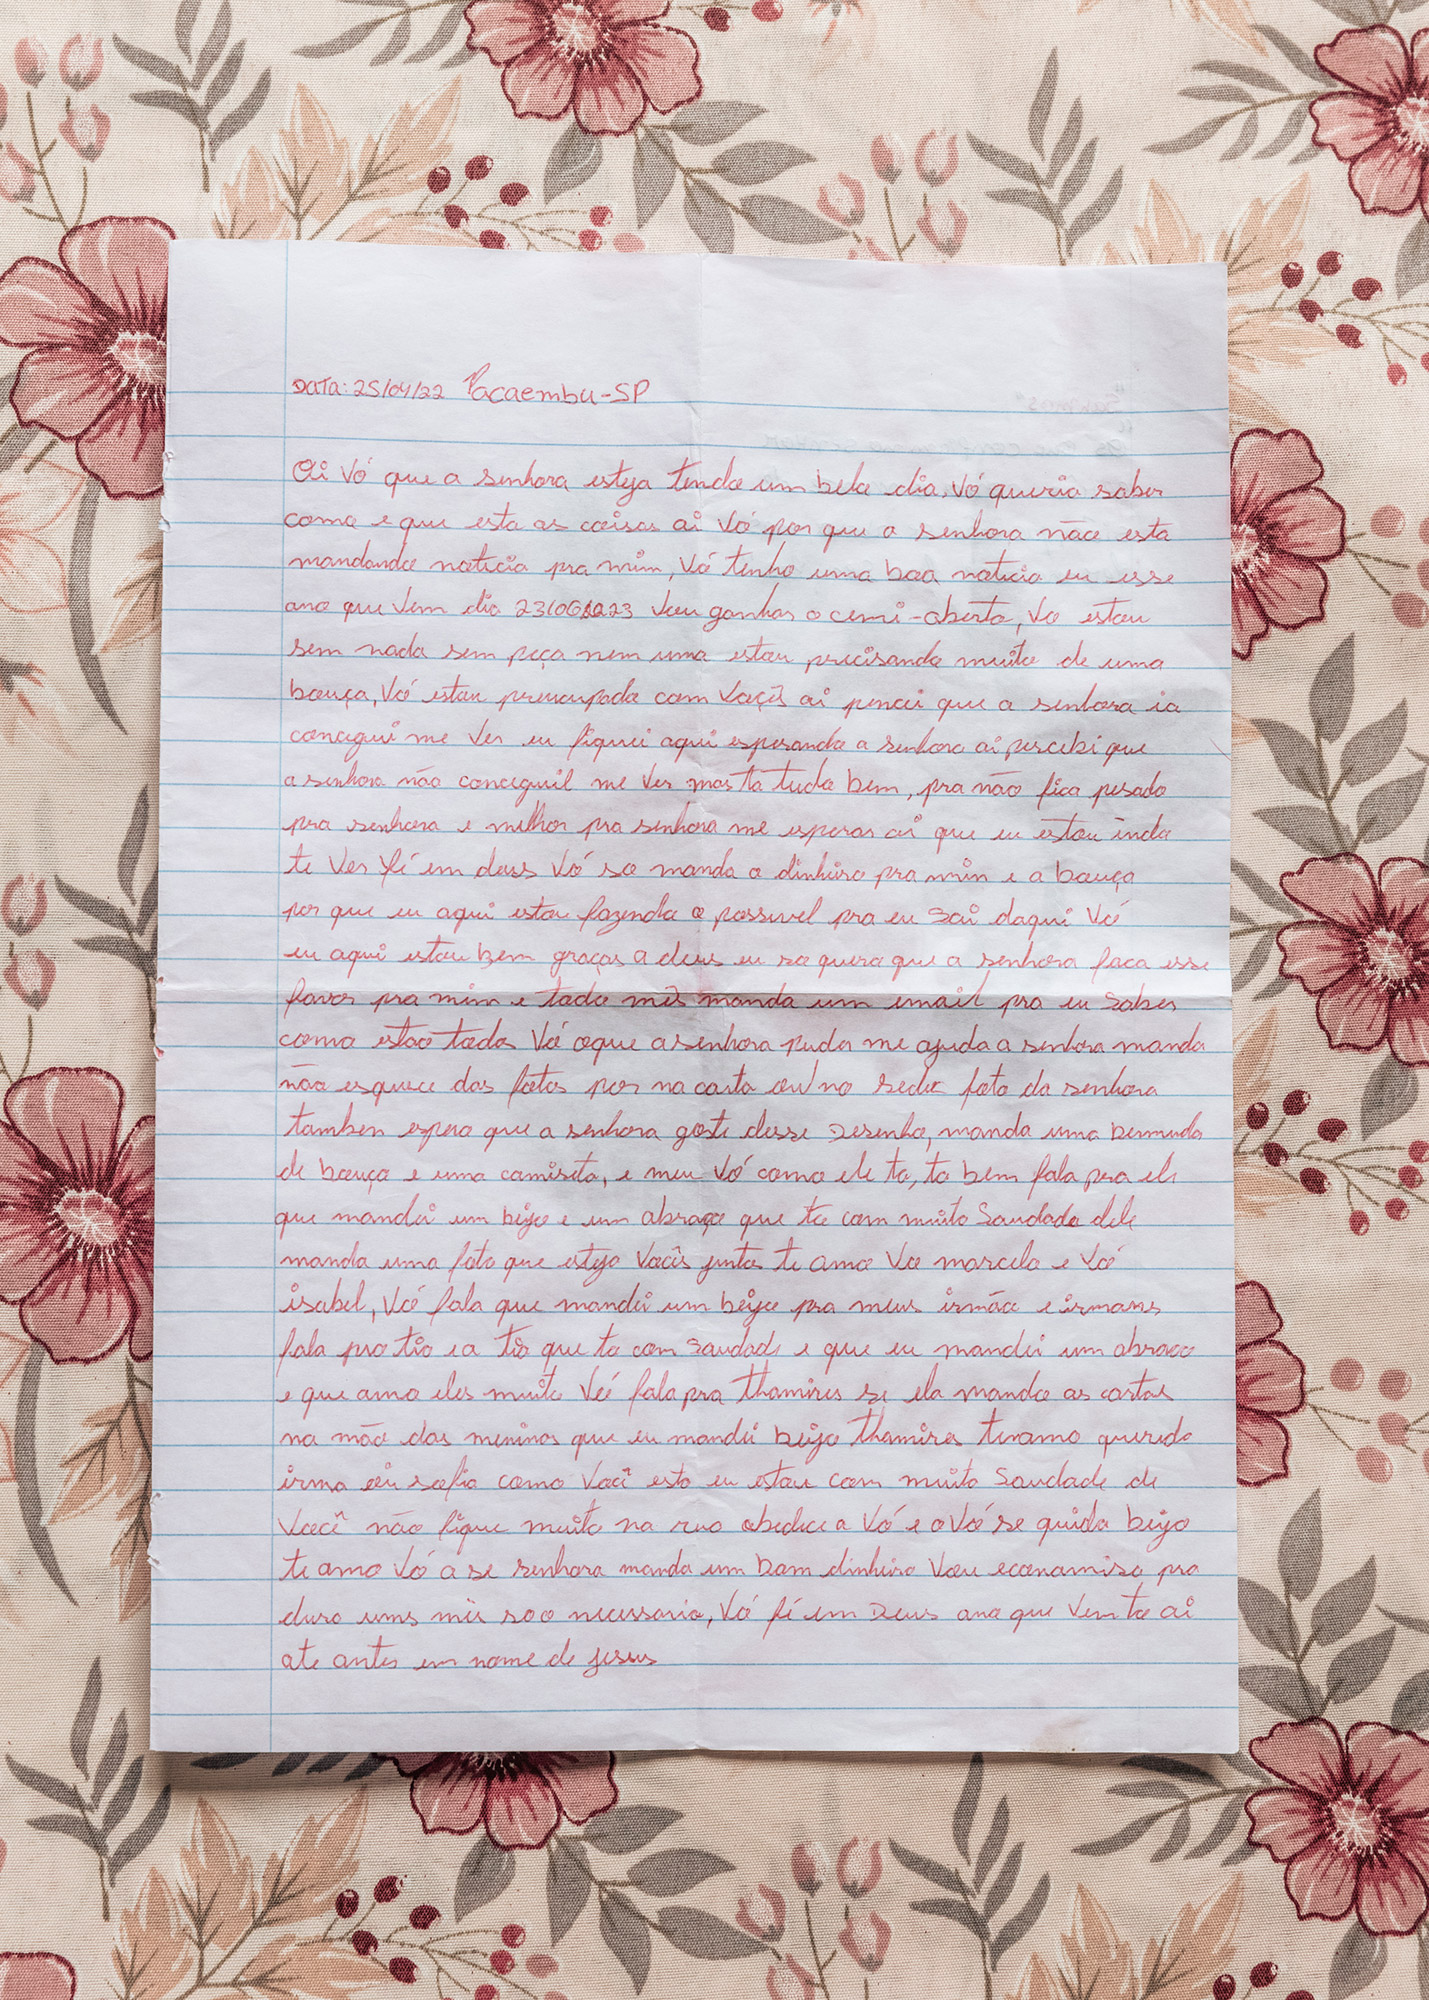 DATA: 25/04/22 Pacaembu-SP
Oi Vó que a senhora esteja tendo um belo dia, Vó queria saber
como e que esta as coisas ai Vó por que a senhora não esta
mandando noticia pra mim, Vó tenho uma boa noticia eu esse
ano que Vem dia 23/06/2023 Vou ganhar o cemi-aberto, Vo estou
sem nada sem peça nem uma estou precisando muito de uma
bouça, Vó estou preucupado com Voçês ai pencei que a senhora ia
concegui me Ver eu fiquei aqui esperando a senhora ai percebi que
a senhora não conceguil me Ver mas ta tudo bem, pra não fica pesado
pra senhora e melhor pra senhora me esperar ai que eu estou indo
te Ver fé em deus Vó so manda o dinheiro pra mim e a bouça
por que eu aqui estou fazendo o possivel pra eu Sai daqui Vó
eu aqui estou bem graças a deus eu so quero que a senhora faca esse
favor pra mim e todo mês manda um email pra eu Saber
como estão todos Vó oque a senhora puder me ajuda a senhora manda
não esquece das fotos por na carta ou no Sedex foto da senhora
tambem espero que a senhora goste desse Desenho, manda uma bermuda
de bouça e uma camiseta, e meu Vó como ele ta, ta bem fala pra ele
que mandei um beijo e um abraço que to com muito Saudade dele
manda uma foto que esteja Vocês juntos te amo Vo marcelo e Vó
isabel, Vó fala que mandei um beijo pra meus irmão e irmans
fala pro tio e a tia que to com Saudade e que eu mandei um abraco
e que amo eles muito Vó fala pra thamires se ela manda as cartas
na mão das meninas que eu mandei beijo thamires te amo querida
irma oi sofia como Você esta eu estou com muito Saudade de
Você não fique muito na rua obedece a Vó e o Vô se quida beijo
te amo Vó a se senhora manda um bom dinheiro Vou economisa pra
dura uns mes soo necessario, Vó fé em Deus ano que Vem to ai
ate antes em nome de jesus